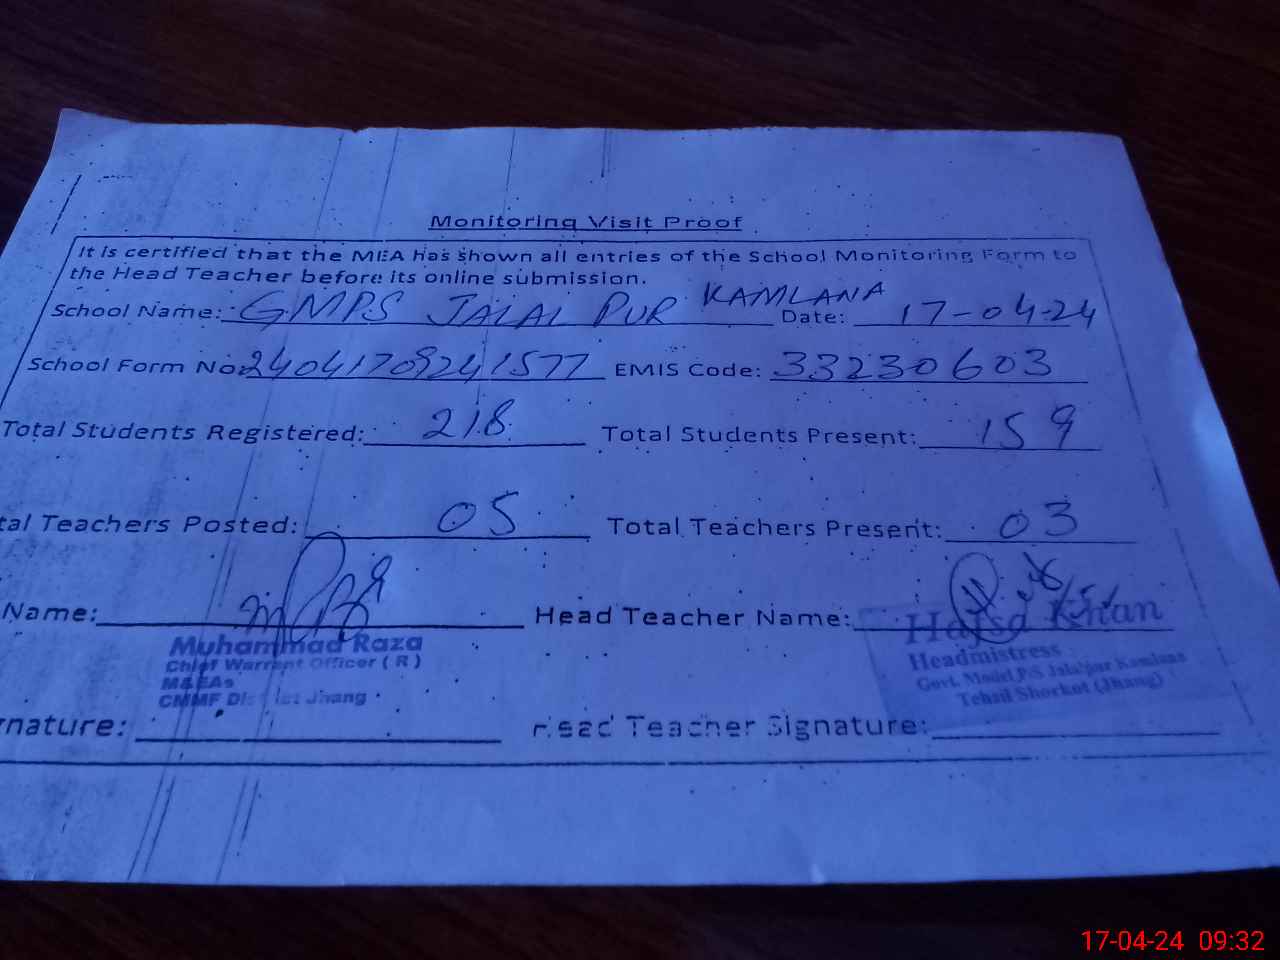 Monitoring Visit Proof
It is certified that the MEA has shown all entries of the School Monitoring Form to
the Head Teacher before its online submission.
School Name: GMPS JALAL PUR KAMLANA Date: 17-04-24
School Form No: 24041709241577 EMIS Code: 33230603
Total Students Registered: 218 Total Students Present: 159
tal Teachers Posted: 05 Total Teachers Present: 03
Name: Head Teacher Name:
Muhammad Raza
Chief Warrant Officer ( R )
M&EAs
CMMF District Jhang
Hafsa Khan
Headmistress
Govt. Model P/S Jalalpur Kamlana
Tehsil Shorkot (Jhang)
nature: Head Teacher Signature:
17-04-24 09:32